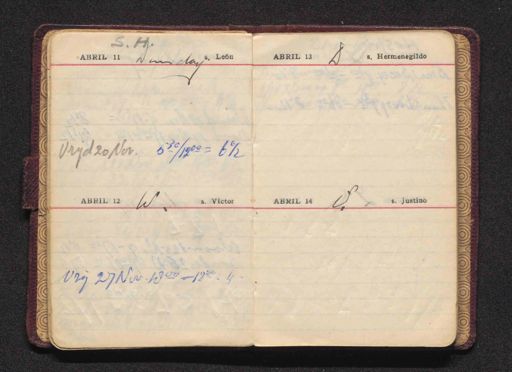 S. H.
ABRIL 11 s. León
Vryd 20 Nov. 5³⁰/12⁰⁰ = 6½
ABRIL 12 W. s. Víctor
Vrij 27 Nov. 13⁰⁰ — 18⁰⁰ · 4 -
ABRIL 13 D s. Hermenegildo
ABRIL 14 s. Justino